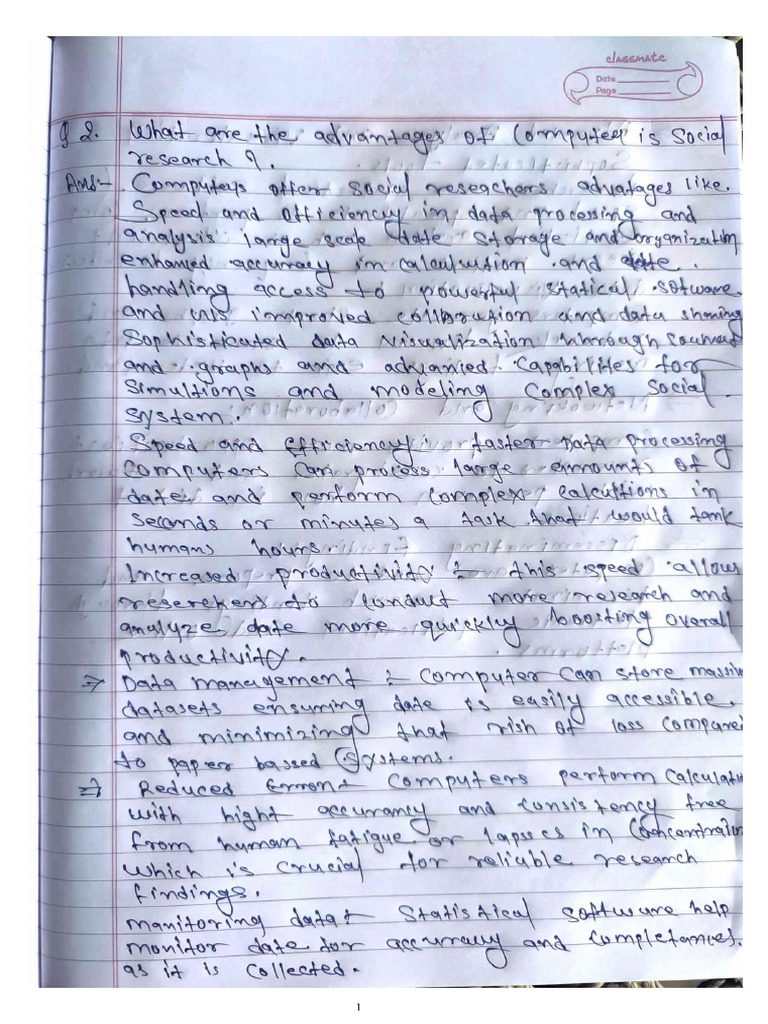 classmate
Date
Page
Q 2. What are the advantages of Computer is Social
research ?.
Ans:- Computers offer social reseachors advatages like.
Speed and Officioncy in data processing and
analysis large scale date storage and oryganization
enhanced accuracy in calculation and date.
handling access to powerful statical sotware.
and improved and data sharing
Sophisticated data visualization through
and graphs and advanied Capabilites for
Simultions and modeling Complex Social
System.
Speed and Efficiency : faster Data processing
Computers Can process large amounts of
date and perform Complex Calcultions in
Seconds or minutes a task that would tank
humans hours.
Increased productivity :- this speed allow
reserchers to Conduct more research and
analyze date more quickly boosting Overall
productivity.
⇒ Data management :- Computer Can store massive
datasets ensuring date is easily accessible.
and minimizing that rish of loss Compared
to paper bassed Systems.
⇒ Reduced Error:- Computers perform Calculati
with hight accurancy and Consistency free
from human fatigue or lapses in Concentration
Which is Crucial for reliable research
findings.
manitoring data:- Statistical software help
monitor date for accurracy and Completances.
as it is Collected.
1